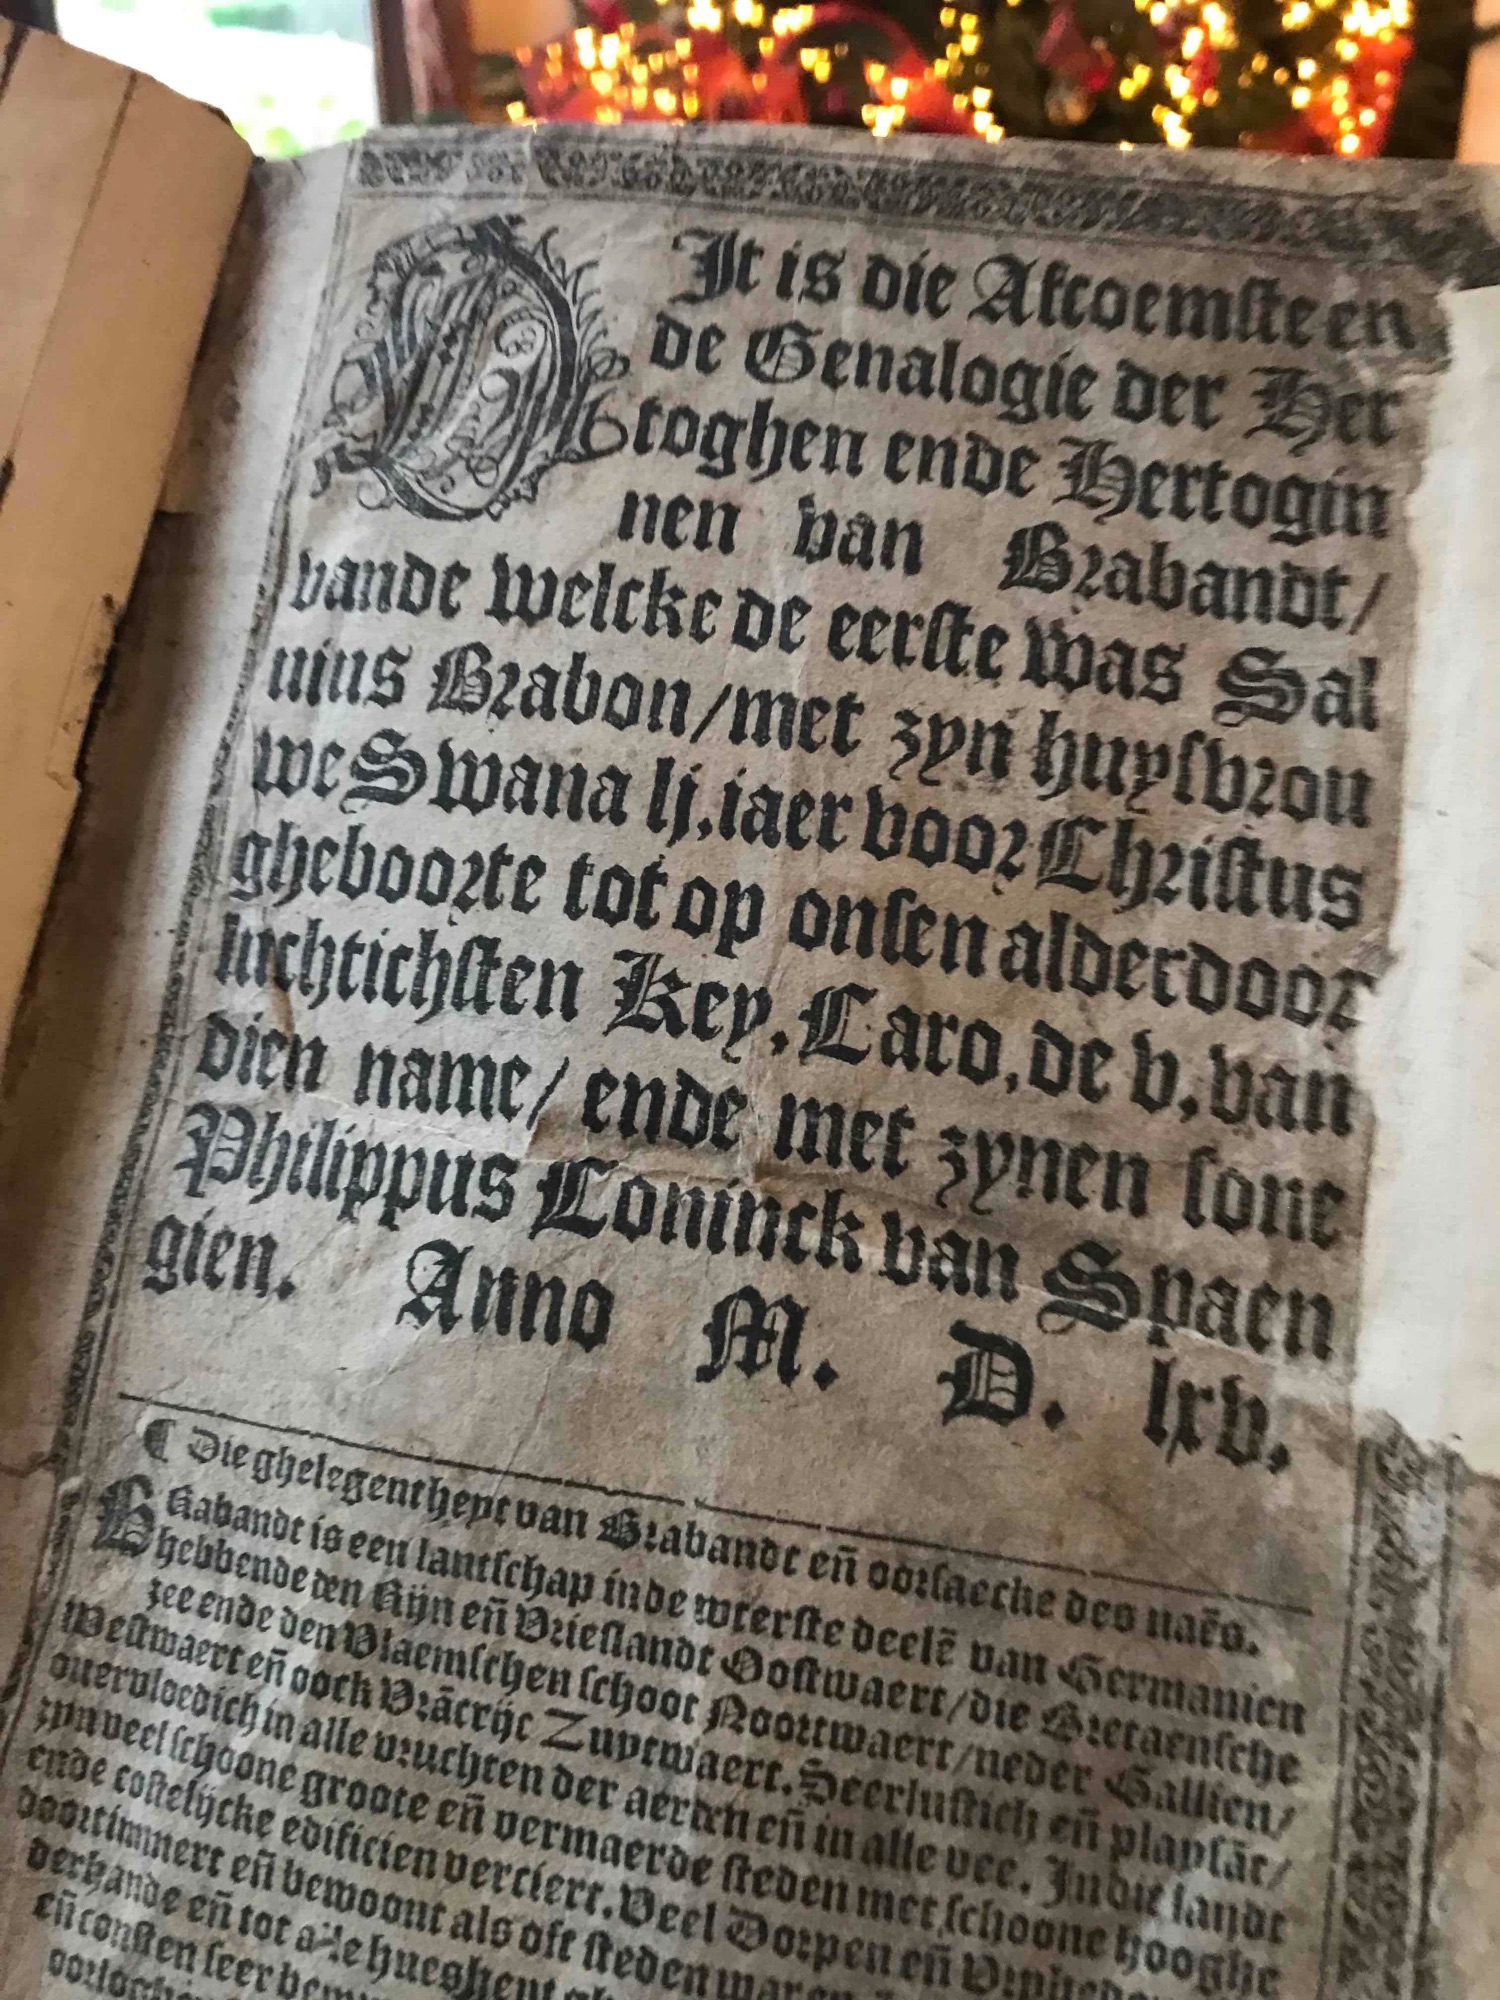 DIt is die Afcoemste en
de Genalogie der Her
toghen ende Hertogin
nen van Brabandt/
vande welcke de eerste was Sal
uius Brabon/met zyn huysvrou
we Swana lj. iaer voor Christus
gheboorte tot op onsen alderdoor
luchtichsten Key. Caro. de v. van
dien name/ ende met zynen sone
Philippus Coninck van Spaen
gien. Anno M. D. lxv.
¶ Die gheleghentheyt van Brabandt eñ oorsaecke des naēs.
BRabandt is een lantschap inde wterste deelē van Germanien
hebbende den Rijn eñ Vrieslandt Oostwaert/die Bretaensche
zee ende den Vlaemschen schoot Noortwaert/neder Gallien/
Westwaert eñ oock Vrācrijc Zuytwaert. Seer lustich eñ playsāt/
ouervloedich in alle vruchten der aerden eñ in alle vee. In dit landt
zyn veel schoone groote eñ vermaerde steden met schoone hooghe
ende costelijcke edificien verciert. Veel Dorpen eñ
doortimmert eñ bewoont als oft steden waren
derhande eñ tot alle
eñ consten seer